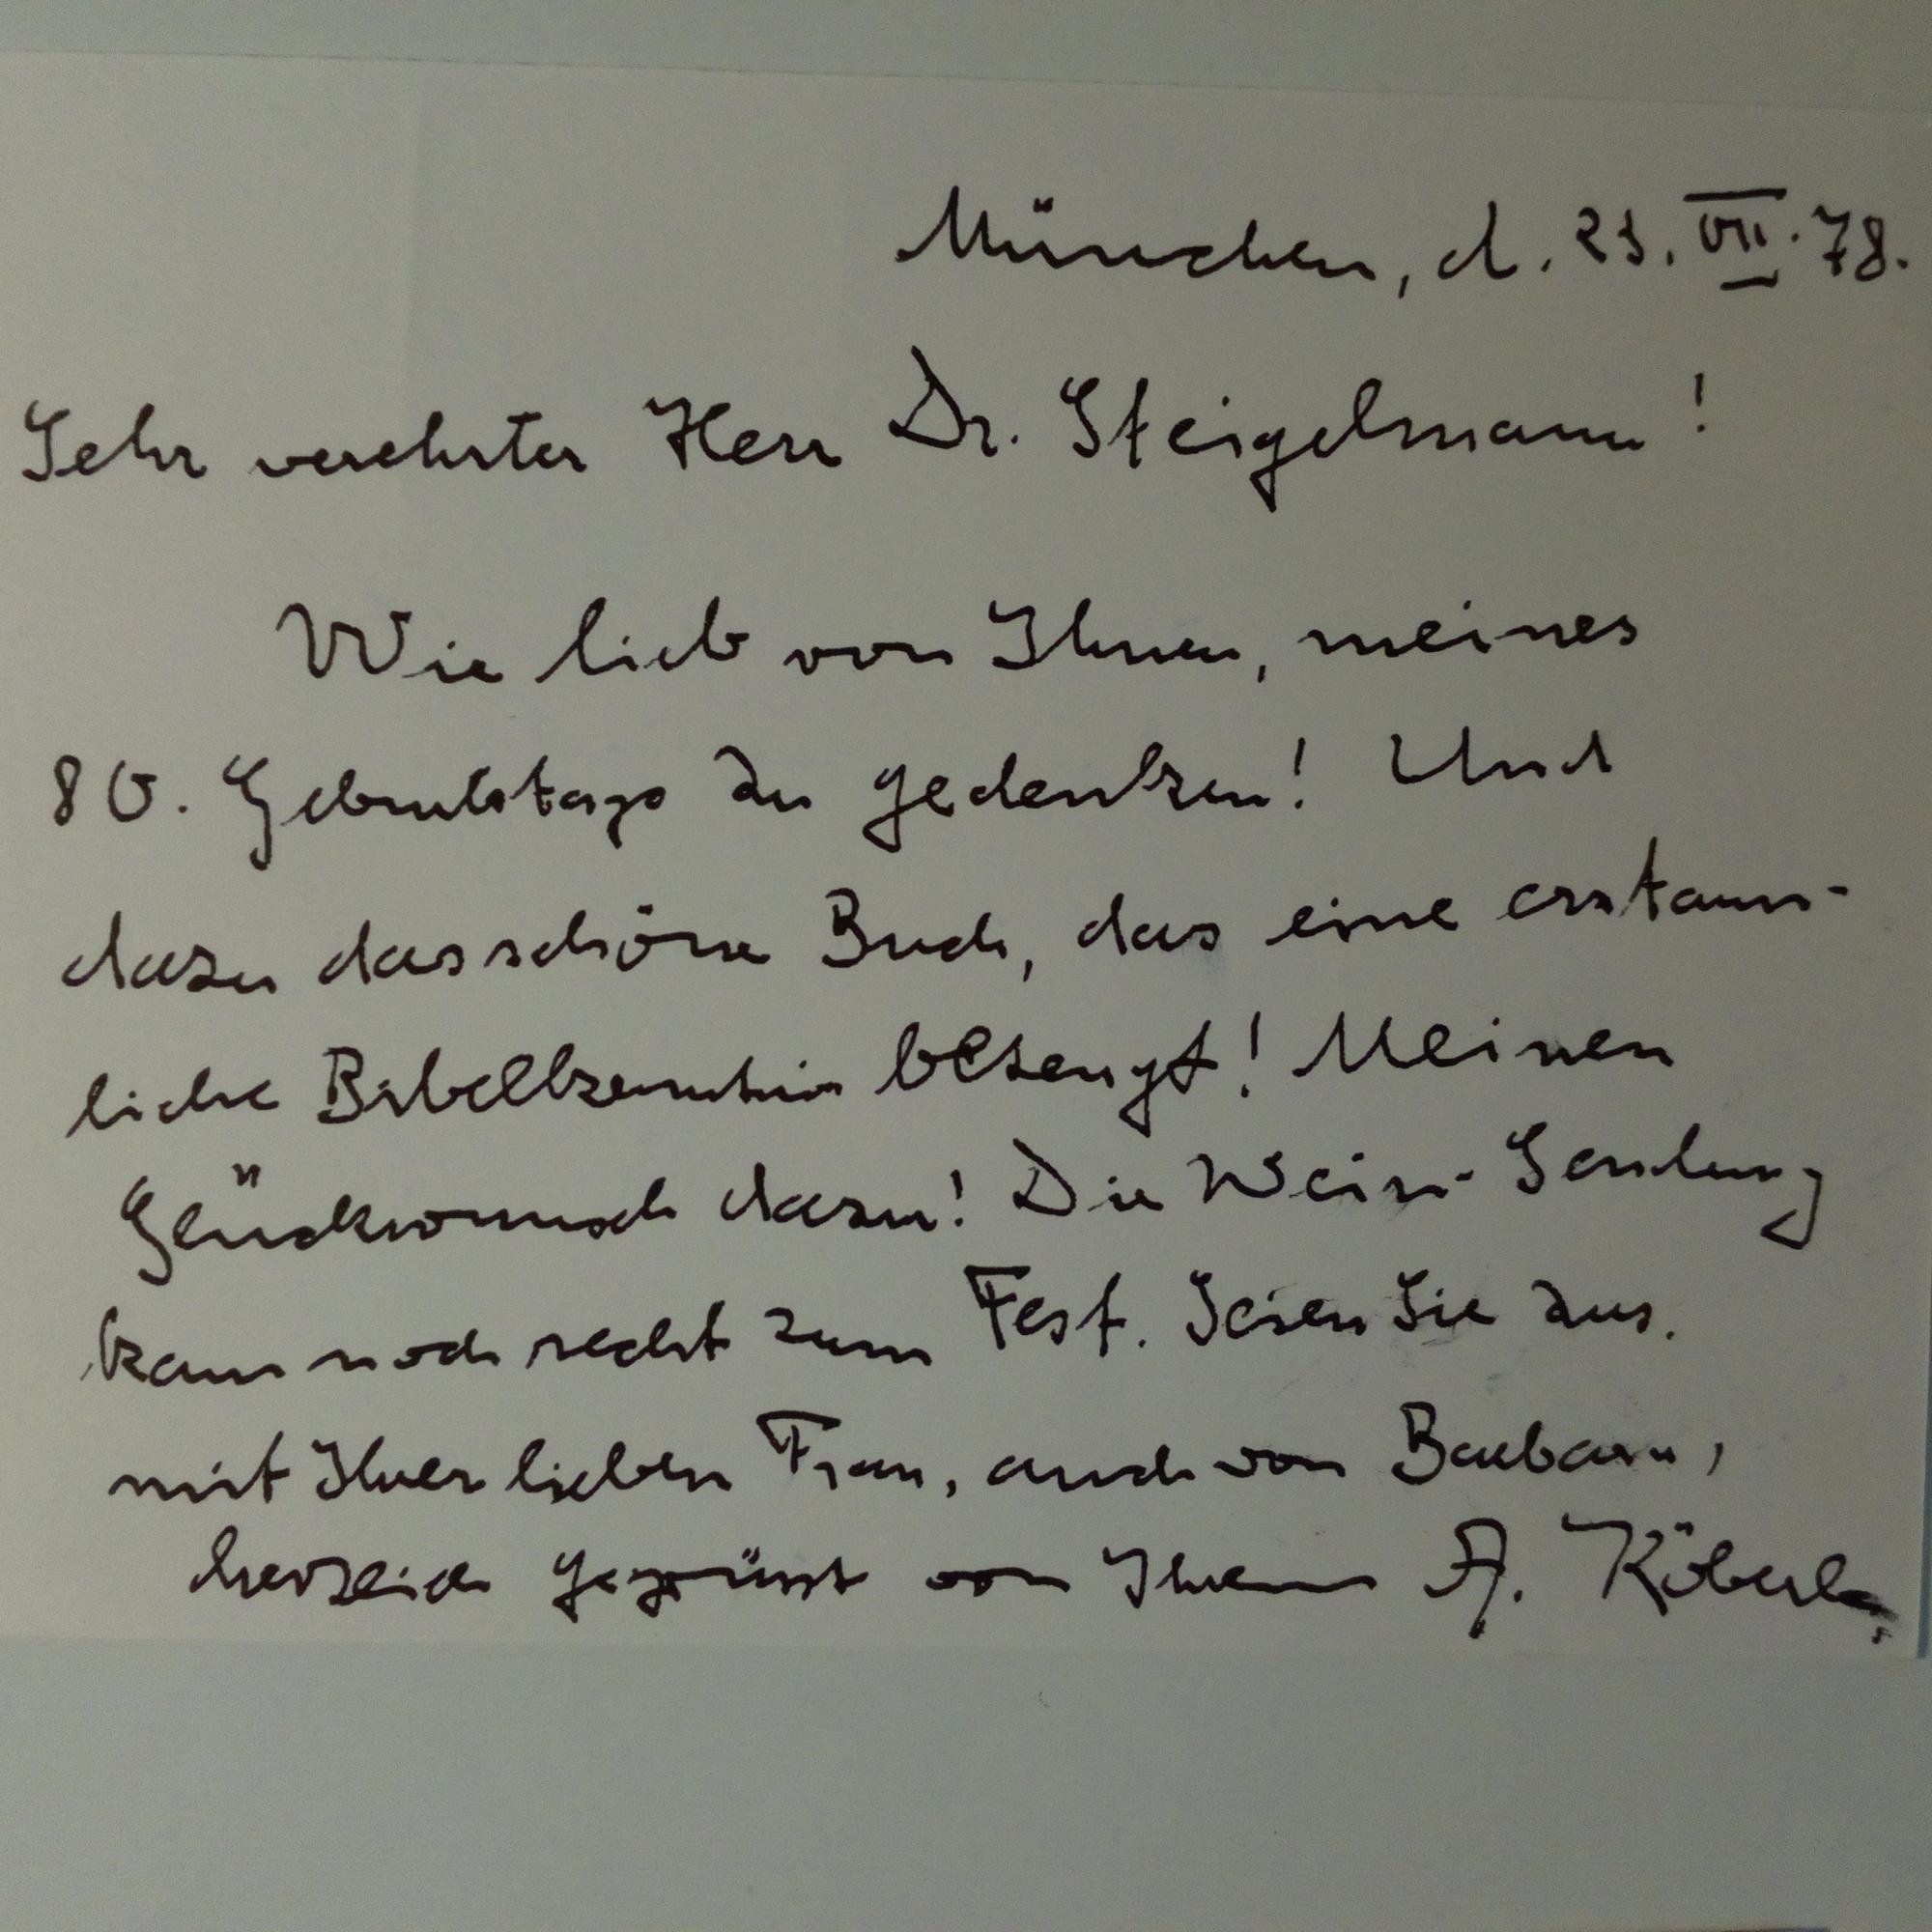 München, d. 23. VII. 78.
Sehr verehrter Herr Dr. Steigelmann!
Wie lieb von Ihnen, meines
80. Geburtstags zu gedenken! Und
dazu das schöne Buch, das eine erstaun-
liche Bibelkenntnis bezeugt! Meinen
Glückwunsch dazu! Die Wein-Sendung
kam noch recht zum Fest. Seien Sie zus.
mit Ihrer lieben Frau, auch von Barbara,
herzlich gegrüsst von Ihrem A. Köberle